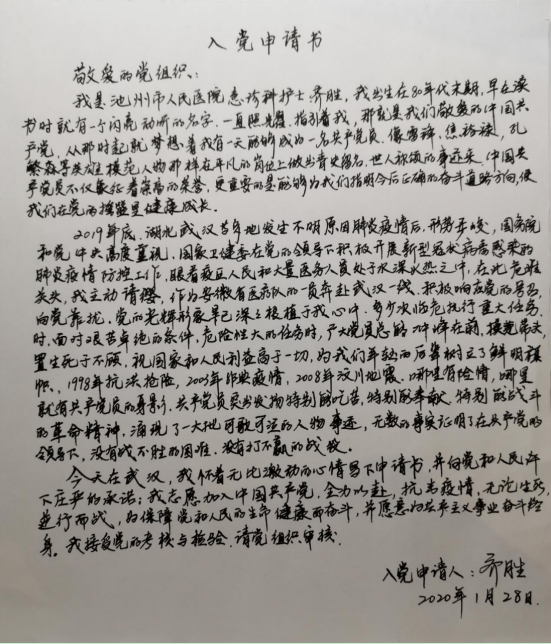 入党申请书
敬爱的党组织:
我是池州市人民医院急诊科护士齐胜,我出生在80年代末期,早在读
书时就有一个闪亮动听的名字,一直照耀、指引着我,那就是我们敬爱的中国共
产党,从那时起就梦想着我有一天能够成为一名共产党员,像雷锋、焦裕禄、孔
繁森等英雄模范人物那样在平凡的岗位上做出青史留名、世人称颂的事迹来。中国共
产党员不仅象征着崇高的荣誉,更重要的是能够为我们指明今后正确的奋斗道路方向,使
我们在党的摇篮里健康成长。
2019年底,湖北武汉等地发生不明原因肺炎疫情后,形势严峻,国务院
和党中央高度重视,国家卫健委在党的领导下积极开展新型冠状病毒感染的
肺炎疫情防控工作,眼看疫区人民和大量医务人员处于水深火热之中,在此危难
关头,我主动请缨,作为安徽省医疗队的一员奔赴武汉一线,积极响应党的号召,
向党靠拢。党的光辉形象早已深深根植于我心中,多少次临危执行重大任务
时,面对艰苦卓绝的条件,危险性大的任务时,广大党员总能冲锋在前,模范带头,
置生死于不顾,视国家和人民利益高于一切,为我们年轻的后辈树立了鲜明旗
帜。1998年抗洪抢险,2003年非典疫情,2008年汶川地震,哪里有险情,哪里
就有共产党员的身影,共产党员突出发扬特别能吃苦、特别能奉献、特别能战斗
的革命精神,涌现了一大批可歌可泣的人物事迹,无数的事实证明了在共产党的
领导下,没有战不胜的困难,没有打不赢的战役。
今天在武汉,我怀着无比激动的心情写下申请书,并向党和人民许
下庄严的承诺:我志愿加入中国共产党,全力以赴,抗击疫情,无论生死,
逆行而战,为保障党和人民的生命健康而奋斗,并愿意为共产主义事业奋斗终
身。我接受党的考核与检验,请党组织审核.
入党申请人:齐胜
2020年1月28日.